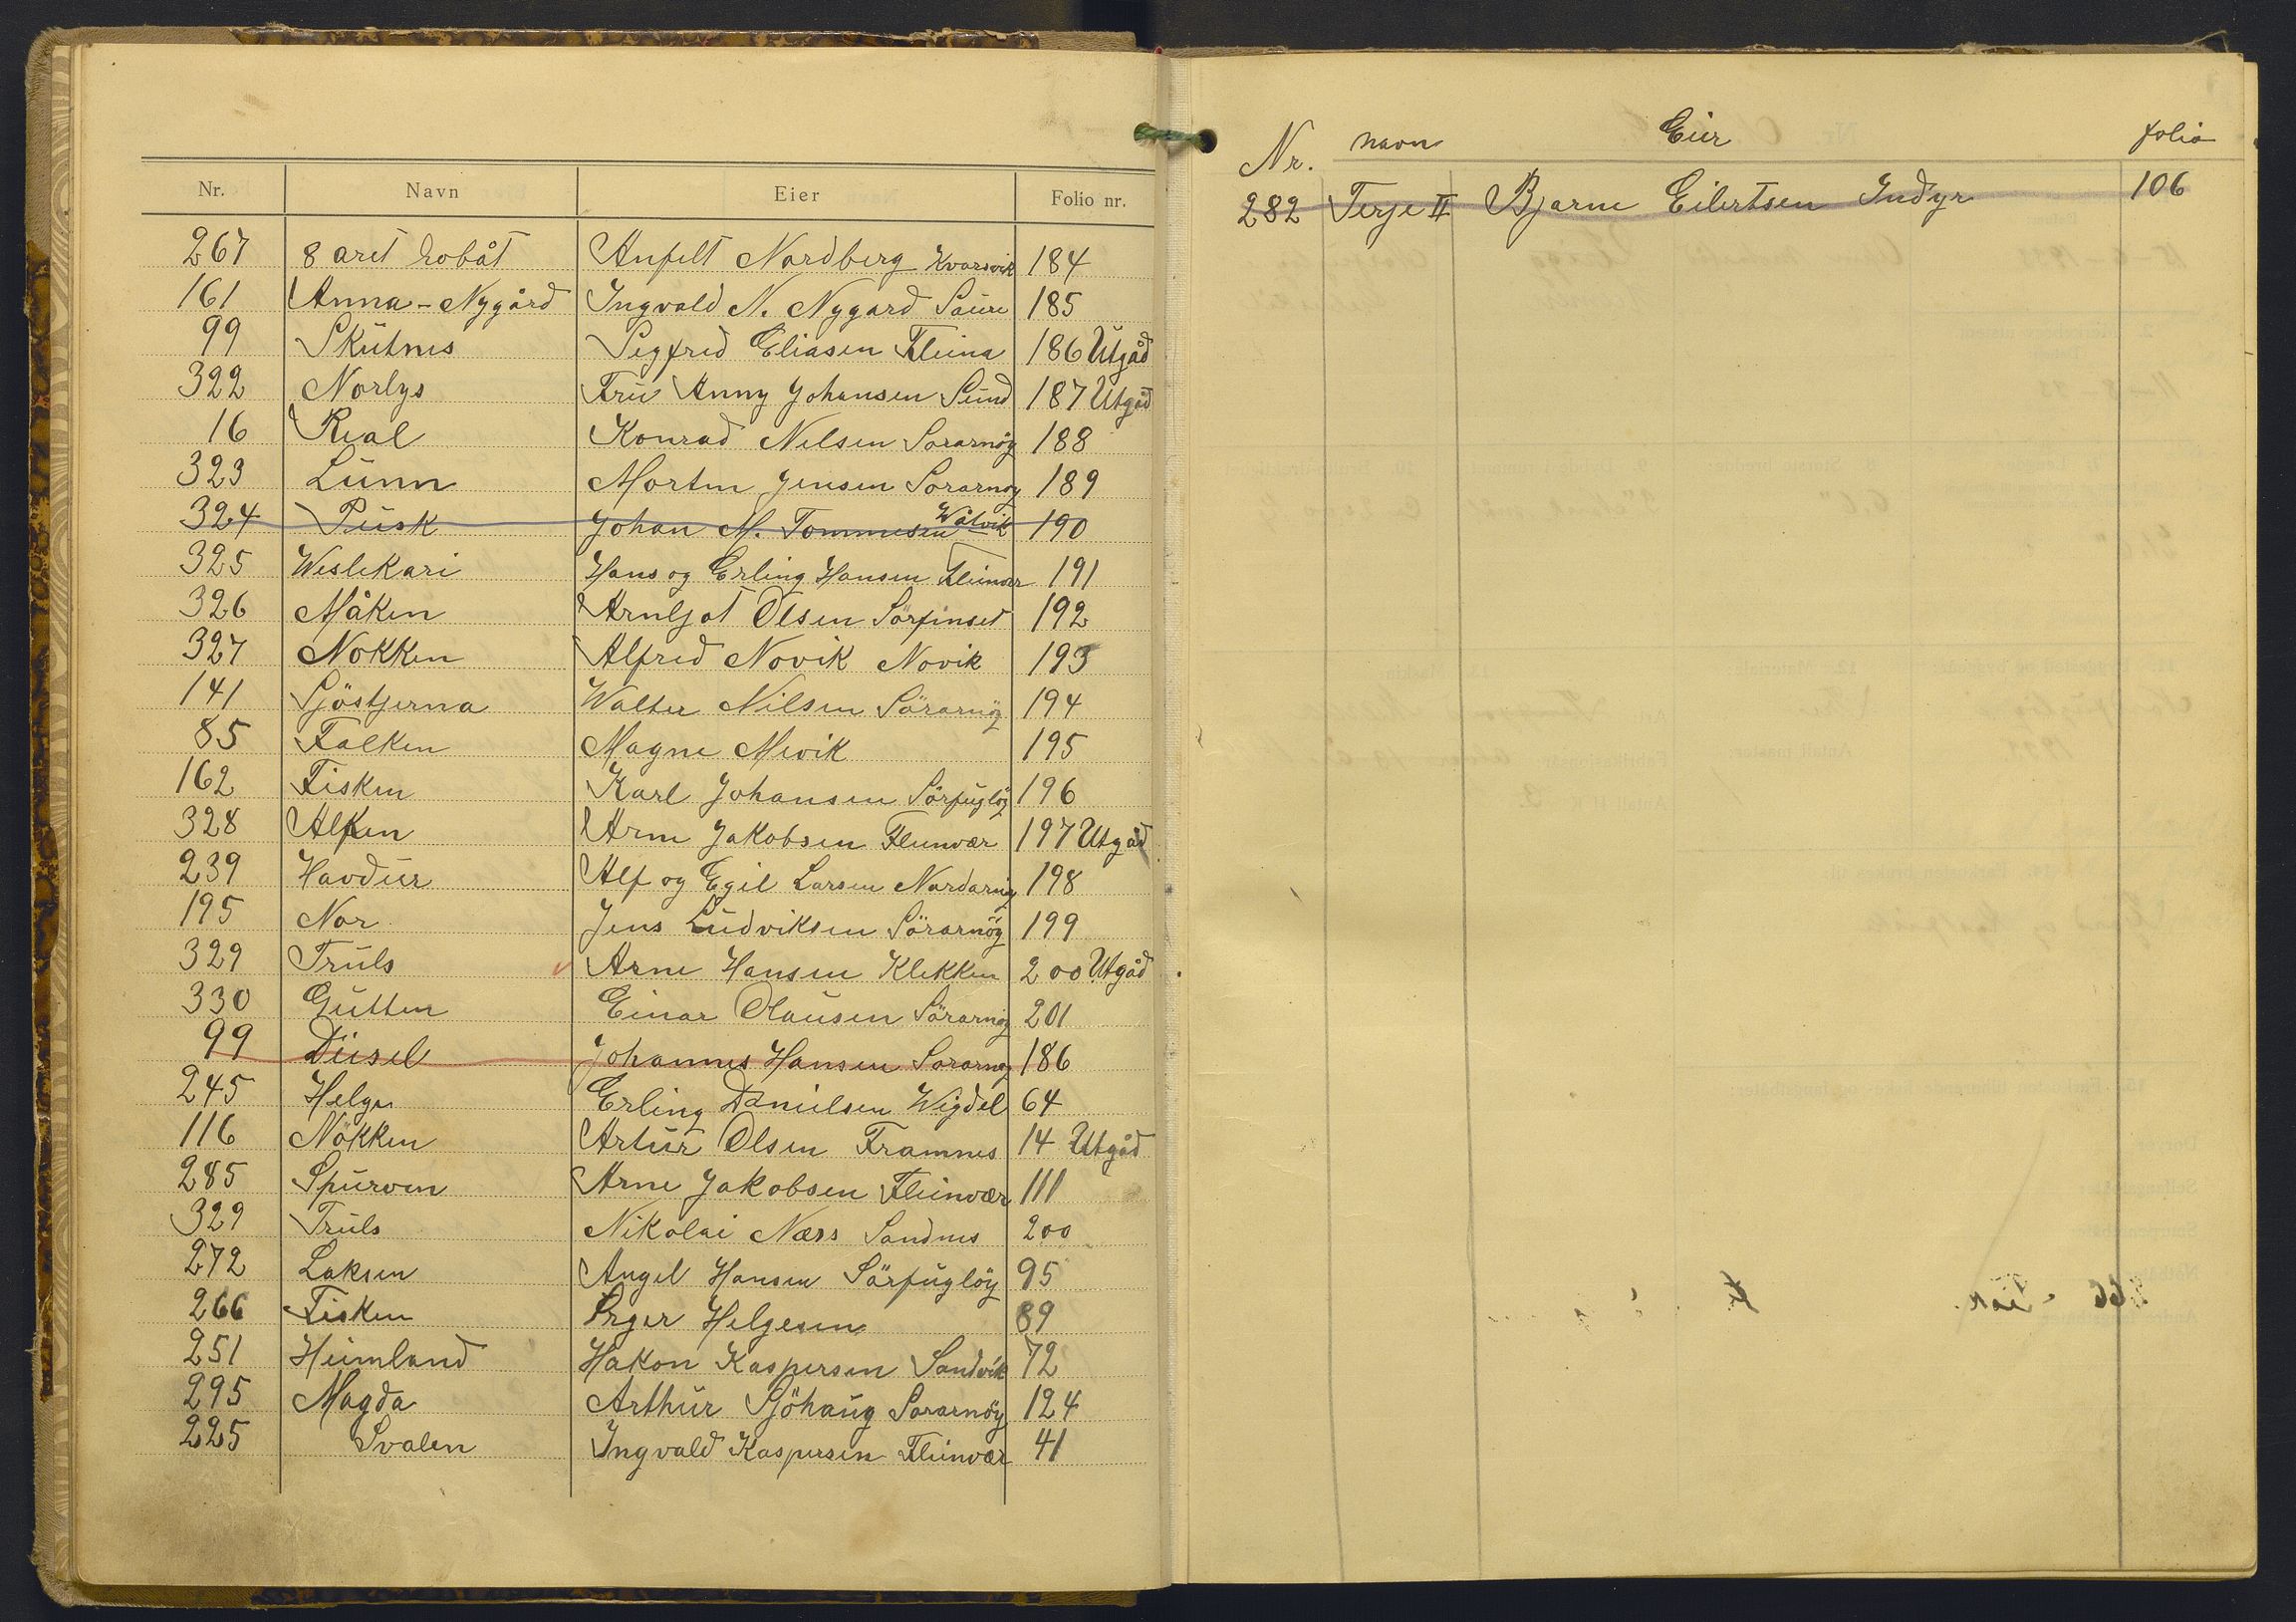 Nr. Navn Eier Folio nr.
267 8 aret robåt Anfelt Nordberg Kvarsvik 184
161 Anna-Nygård Ingvald N. Nygard Saura 185
99 Skutnes Segfred Eliasen Fleina 186 Utgåd
322 Norlys Fru Anny Johansen Sund 187 Utgåd
16 Real Konrad Nilsen Sorarnöy 188
323 Lunn Morten Jensen Sorarnøy 189
324 Pusk Johan M. Tommesen Våtvik 190
325 Weslekari Hans og Erling Hansen Fleinvær 191
326 Måken Arnljot Olsen Sörfinset 192
327 Nokken Alfred Novik Novik 193
141 Sjöstjerna Walter Nilsen Sörarnöy 194
85 Falken Magne Mevik 195
162 Fisken Karl Johansen Sörfuglöy 196
328 Alken Arne Jakobsen Fleinvær 197 Utgåd
239 Havdur Alf og Egil Larsen Nordarnöy 198
195 Nor Jens Ludviksen Sörarnöy 199
329 Truls Arne Hansen Klekken 200 Utgåd
330 Gutten Einar Olausen Sörarnöy 201
99 Diisel Johannes Hansen Sorarnøy 186
245 Helga Erling Danielsen Wigdel 64
116 Nökken Artur Olsen Framnes 14 Utgåd
285 Spurven Arne Jakobsen Fleinvær 111
329 Truls Nikolai Næss Sandnes 200
272 Laksen Angel Hansen Sörfuglöy 95
266 Fisken Helgesen 89
251 Heimland Hakon Kaspersen Sandvik 72
295 Magda Arthur Sjöhaug Sorarnöy 124
225 Svalen Ingvald Kaspersen Fleinvær 41
Nr. navn Eier folio
282 Terje II Bjarne Eilertsen Indyr 106